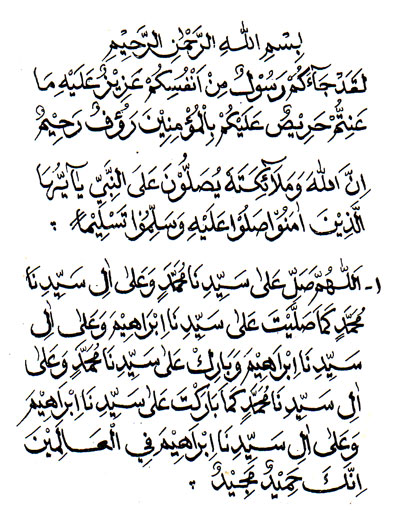 بِسْمِ اللهِ الرَّحْمٰنِ الرَّحِيْمِ
لَقَدْ جَآءَكُمْ رَسُوْلٌ مِنْ اَنْفُسِكُمْ عَزِيْزٌ عَلَيْهِ مَا
عَنِتُّمْ حَرِيْصٌ عَلَيْكُمْ بِالْمُؤْمِنِيْنَ رَؤُفٌ رَحِيْمٌ
اِنَّ اللهَ وَمَلَآئِكَتَهُ يُصَلُّوْنَ عَلَى النَّبِيِّ يَآ اَيُّهَا
الَّذِيْنَ اٰمَنُوْا صَلُّوْا عَلَيْهِ وَسَلِّمُوْا تَسْلِيْمًا ؞
١- اَللّٰهُمَّ صَلِّ عَلٰى سَيِّدِنَا مُحَمَّدٍ وَعَلٰى اٰلِ سَيِّدِنَا
مُحَمَّدٍ كَمَا صَلَّيْتَ عَلٰى سَيِّدِنَا اِبْرَاهِيْمَ وَعَلٰى اٰلِ
سَيِّدِنَا اِبْرَاهِيْمَ وَبَارِكْ عَلٰى سَيِّدِنَا مُحَمَّدٍ وَعَلٰى
اٰلِ سَيِّدِنَا مُحَمَّدٍ كَمَا بَارَكْتَ عَلٰى سَيِّدِنَا اِبْرَاهِيْمَ
وَعَلٰى اٰلِ سَيِّدِنَا اِبْرَاهِيْمَ فِي الْعَالَمِيْنَ
اِنَّكَ حَمِيْدٌ مَجِيْدٌ ؞